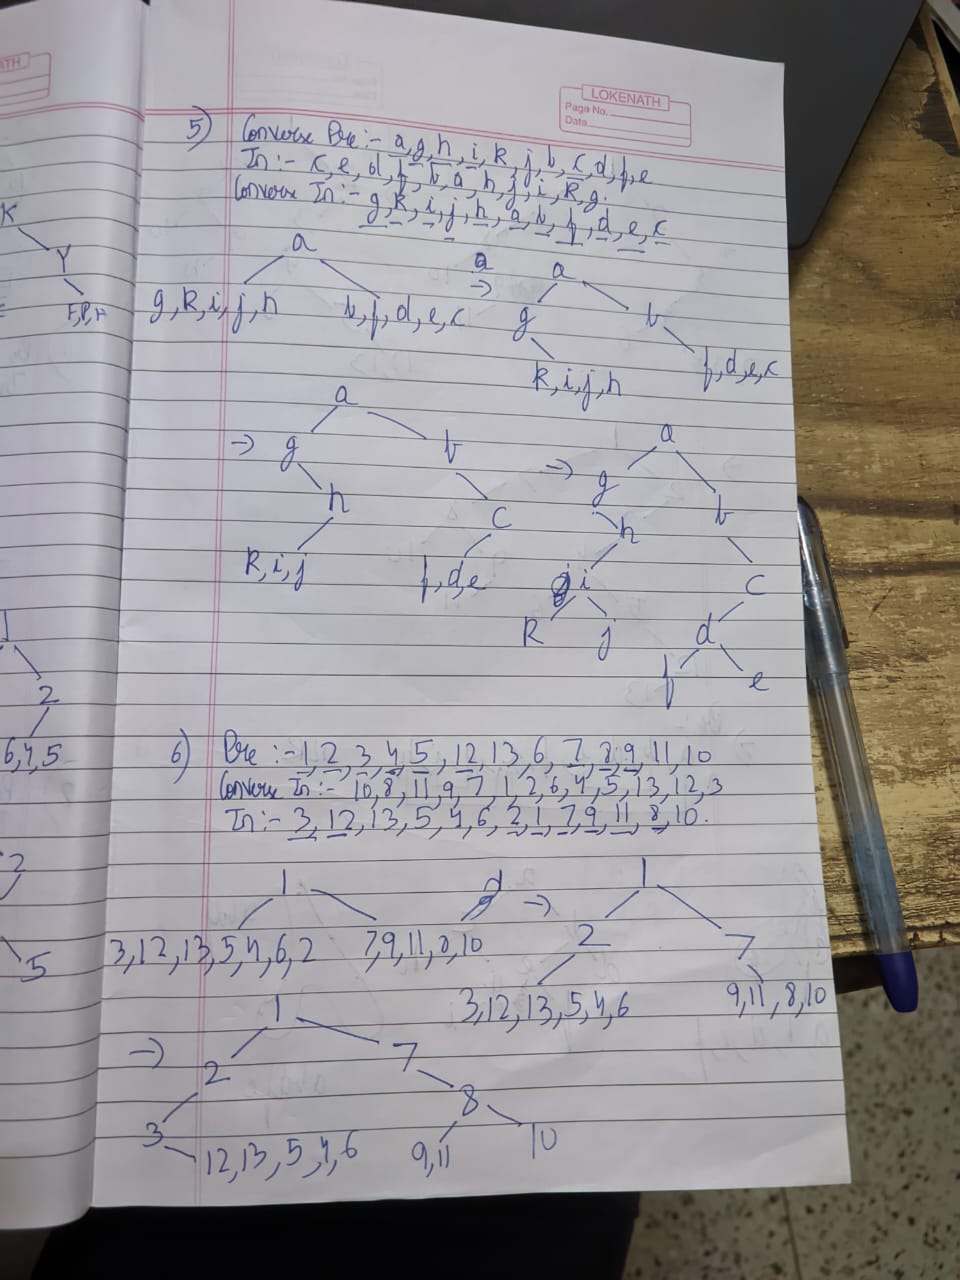 ATH
LOKENATH
Page No.
Date
5) Converse Pre :- a, g, h, i, k, j, b, c, d, f, e
In :- c, e, d, f, b, a, h, j, i, k, g.
Converse In :- g, k, i, j, h, a, b, f, d, e, c
a
g, k, i, j, h b, f, d, e, c
→ a
g b
k, i, j, h f, d, e, c
→ a
g b
h c
k, i, j f, d, e
→ a
g b
h c
i d
k j f e
6) Pre :- 1, 2, 3, 4, 5, 12, 13, 6, 7, 8, 9, 11, 10
Converse In :- 10, 8, 11, 9, 7, 1, 2, 6, 4, 5, 13, 12, 3
In :- 3, 12, 13, 5, 4, 6, 2, 1, 7, 9, 11, 8, 10.
1
3, 12, 13, 5, 4, 6, 2 7, 9, 11, 8, 10
→ 1
2 7
3, 12, 13, 5, 4, 6 9, 11, 8, 10
→ 1
2 7
3 8
12, 13, 5, 4, 6 9, 11 10
K
Y
2
6, 4, 5
2
5